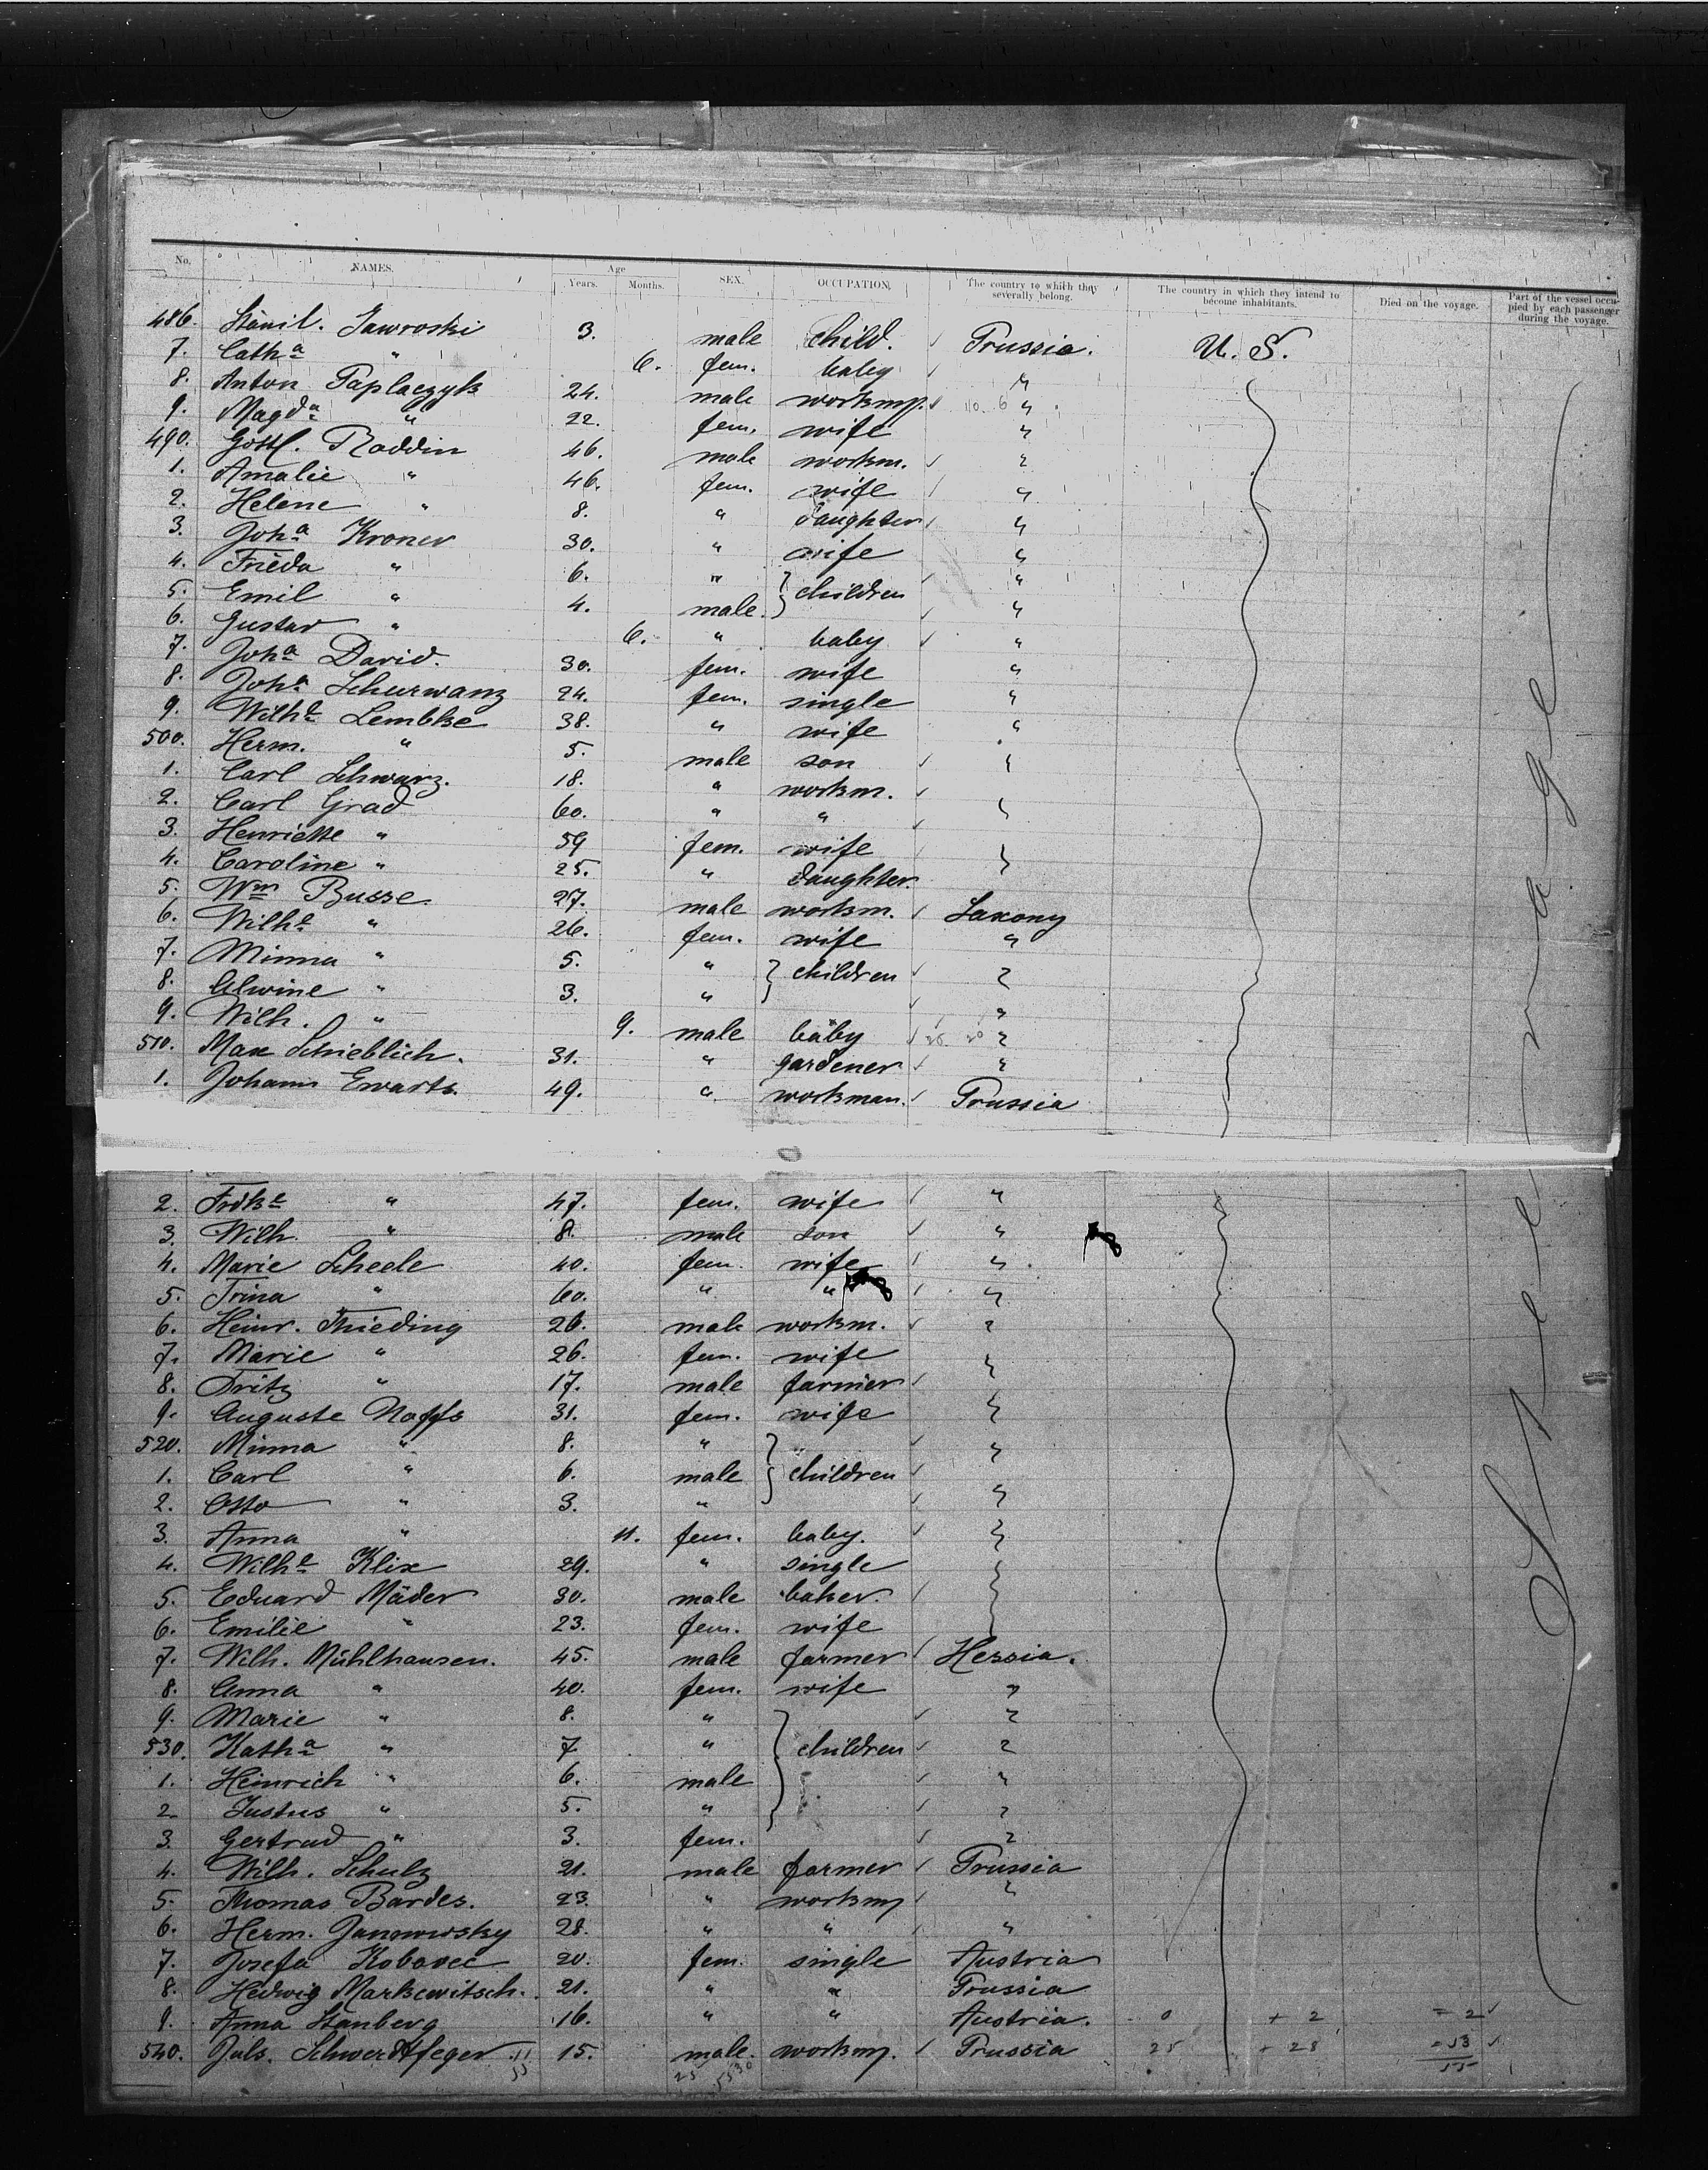 No. NAMES. Age Years. Months. SEX. OCCUPATION. The country to which they severally belong. The country in which they intend to become inhabitants. Died on the voyage. Part of the vessel occupied by each passenger during the voyage.
486. Stanil. Jawroski 3. male child. Prussia. U. S.
7. Catha " 6. fem. baby "
8. Anton Paplaczyk 24. male workm. "
9. Magda " 22. fem. wife "
490. Gottl. Raddin 46. male workm. "
1. Amalie " 46. fem. wife "
2. Helene " 8. " daughter "
3. Joha Kroner 30. " wife "
4. Frieda " 6. " children "
5. Emil " 4. male "
6. Gustav " 6. " baby "
7. Joha David. 30. fem. wife "
8. Joha Schurwanz 24. fem. single "
9. Wilhe Lembke 38. " wife "
500. Herm. " 5. male son "
1. Carl Schwarz. 18. " workm. "
2. Carl Grad 60. " " "
3. Henriette " 59 fem. wife "
4. Caroline " 25. " daughter. "
5. Wm Busse. 27. male workm. Saxony
6. Wilhe " 26. fem. wife "
7. Minna " 5. " children "
8. Alwine " 3. " "
9. Wilh. " 9. male baby "
510. Max Schieblich. 31. " gardener "
1. Johann Ewarts. 49. " workman. Prussia
2. Fridke " 47. fem. wife "
3. Wilh. " 8. male son "
4. Marie Scheele 40. fem. wife "
5. Trina " 60. " " "
6. Heinr. Thieding 26. male workm. "
7. Marie " 26. fem. wife "
8. Fritz " 17. male farmer "
9. Auguste Nopfs 31. fem. wife "
520. Minna " 8. " "
1. Carl " 6. male children
2. Otto " 3. " "
3. Anna " 11. fem. baby. "
4. Wilhe Klix 29. " single "
5. Eduard Mäder 30. male baker. "
6. Emilie " 23. fem. wife "
7. Wilh. Mühlhausen. 45. male farmer Hessia.
8. Anna " 40. fem. wife "
9. Marie " 8. " "
530. Katha " 7 " children "
1. Heinrich " 6. male "
2 Justus " 5. " "
3. Gertrud " 3. fem. "
4. Wilh. Schulz 21. male farmer Prussia
5. Thomas Bardes. 23. " workm "
6. Herm. Janowwsky 28. " " "
7. Josefa Kobovec 20. fem. single Austria
8. Hedwig Markewitsch. 21. " " Prussia
9. Anna Stanberg 16. " " Austria. 0 + 2 = 2
540. Juls. Schwerdtfeger 15. male. workm. Prussia 25 + 28 = 53
55
Steerage